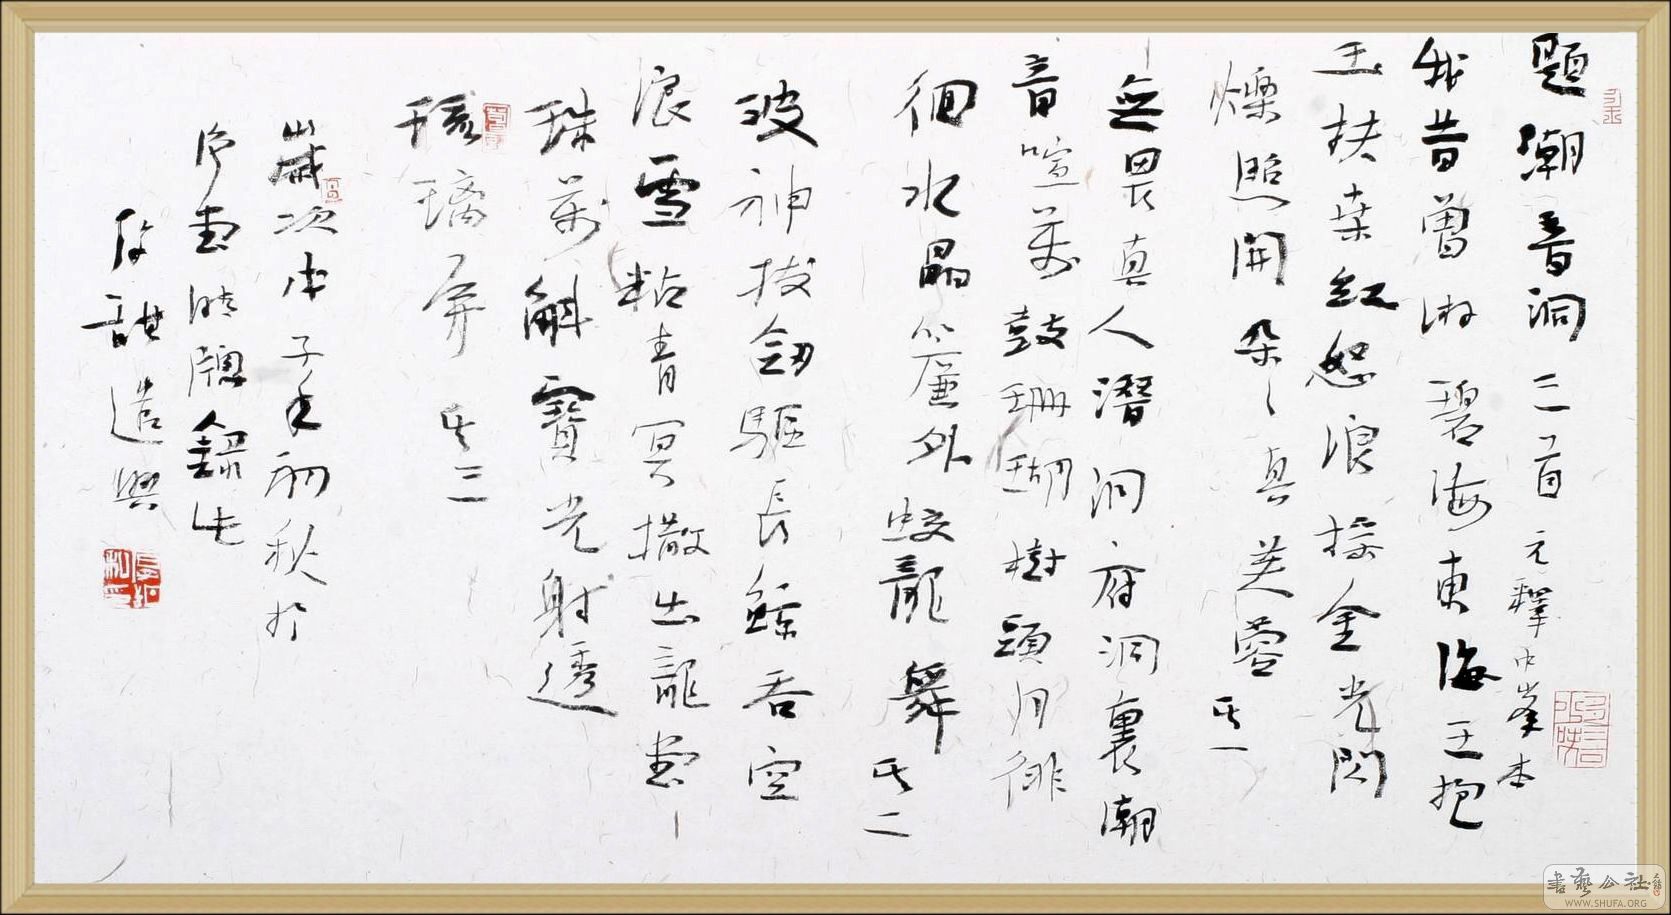 題潮音洞三首 元釋中峯本
我昔曾游碧海東海王抱
玉扶桑紅怒浪接金光閃
爍照開朵朵真芙蓉 其一
無畏真人潛洞府洞裏潮
音喧萬鼓珊瑚樹頭月徘
徊水晶簾外蛟龍舞 其二
波神拔劍驅長鯨吞空
浪雪粘青冥撒出龍堂
珠萬斛寶光射透
琉璃屏 其三
歲次中子年初秋於
晴窗錄此
造興
書藝公社
WWW.SHUFA.ORG